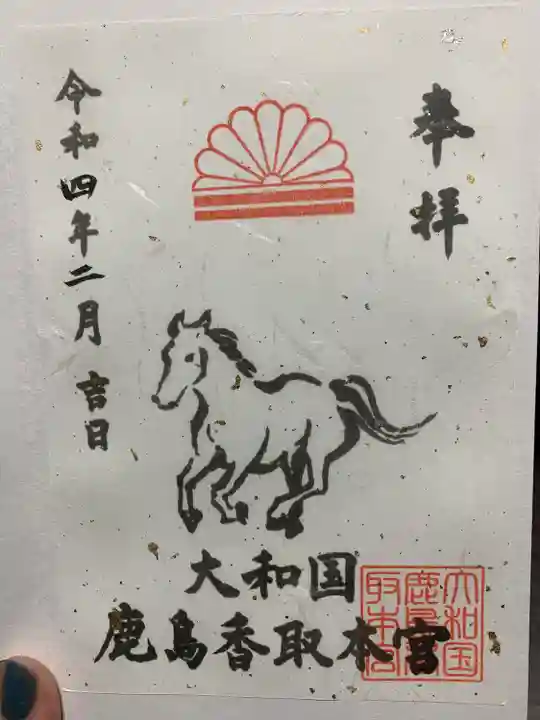 奉拝
令和四年二月 吉日
大和国
鹿島香取本宮
大和国
鹿島香
取本宮